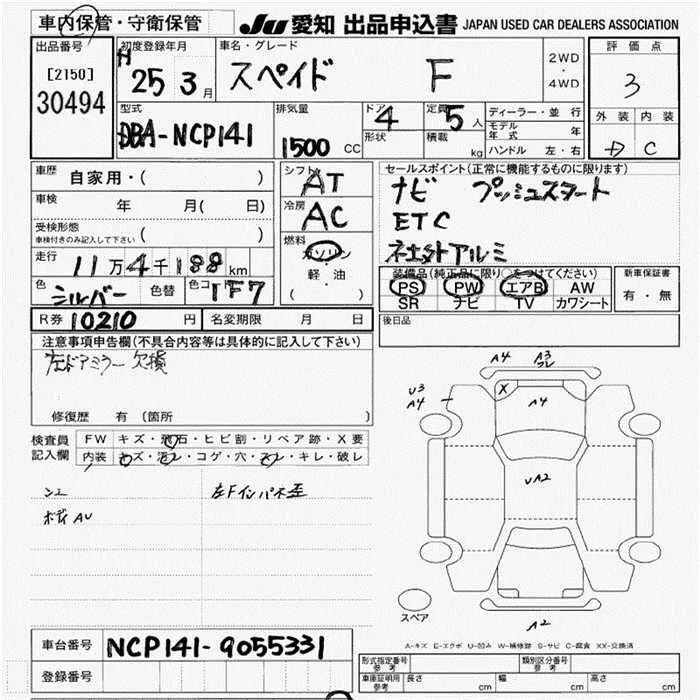 車内保管・守衛保管
JU 愛知 出品申込書 JAPAN USED CAR DEALERS ASSOCIATION
出品番号
[2150]
30494
初度登録年月
H 25 3月
車名・グレード
スペイド F
2WD
・
4WD
評価点
3
外装 内装
D C
型式
DBA-NCP141
排気量
1500 CC
ドア 4
形状
定員 5 人
積載 kg
ディーラー・並行
モデル年式 年
ハンドル 左・右
車歴 自家用・( )
車検 年 月( 日)
受検形態
車検付きのみ記入して下さい ( )
走行 11万4千188km
色 シルバー 色替 色コード 1F7
シフト AT
冷房 AC
燃料
ガソリン
・
軽・油
( )
セールスポイント(正常に機能するものに限ります)
ナビ プッシュスタート
ETC
社外アルミ
装備品(純正品に限り○をつけてください)
PS PW エアB AW
SR ナビ TV カワシート
新車保証書
有・無
R券 10210 円 名変期限 月 日
後日品
注意事項申告欄(不具合内容等は具体的に記入して下さい)
左ドアミラー欠損
修復歴 有 (箇所 )
検査員
記入欄
FW キズ・飛石・ヒビ割・リペア跡・X要
内装 キズ・汚レ・コゲ・穴・スレ・キレ・破レ
ボディAU
左Fインパネ歪
A4 A3
U3
A4
X
A4
UA2
スペア
A2
A-キズ E-エクボ U-凹み W-補修跡 S-サビ C-腐食 XX-交換済
車台番号 NCP141-9055331
登録番号
形式指定番号
参考
類別区分番号
参考
車庫証明用
参考
長さ cm 幅 cm 高さ cm